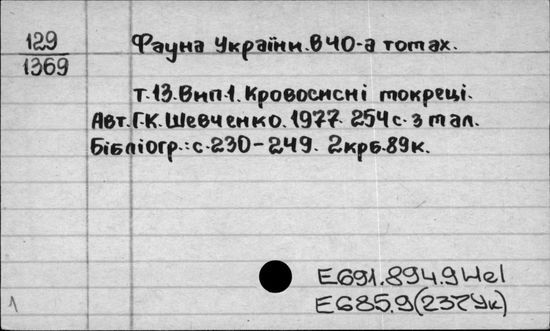 129
1369
Фауна України. В 40-а томах.
т.13. Вип.1. Кровосисні мокреці.
Авт. Г.К. Шевченко. 1977. 254 с. з мал.
Бібліогр.: с. 230-249. 2крб. 89к.
Е691.894.9
Е685.9(237Ук)
1